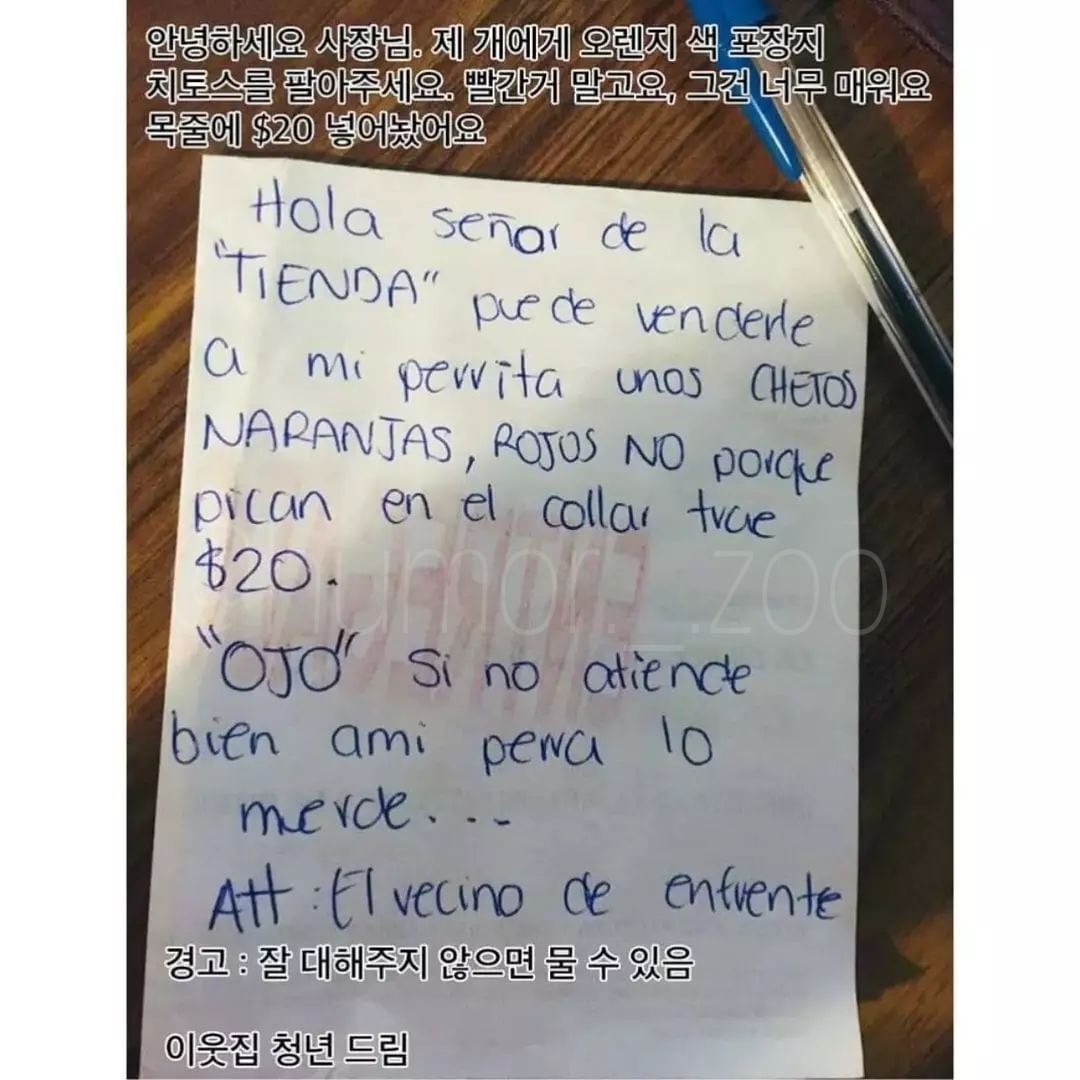 안녕하세요 사장님. 제 개에게 오렌지 색 포장지
치토스를 팔아주세요. 빨간거 말고요, 그건 너무 매워요
목줄에 $20 넣어놨어요
Hola señor de la
"TIENDA" puede venderle
a mi perrita unos CHETOS
NARANJAS, ROJOS NO porque
pican en el collar trae
$20.
humor._.zoo
"OJO" Si no atiende
bien ami perra lo
merde...
Att: El vecino de enfrente
경고 : 잘 대해주지 않으면 물 수 있음
이웃집 청년 드림